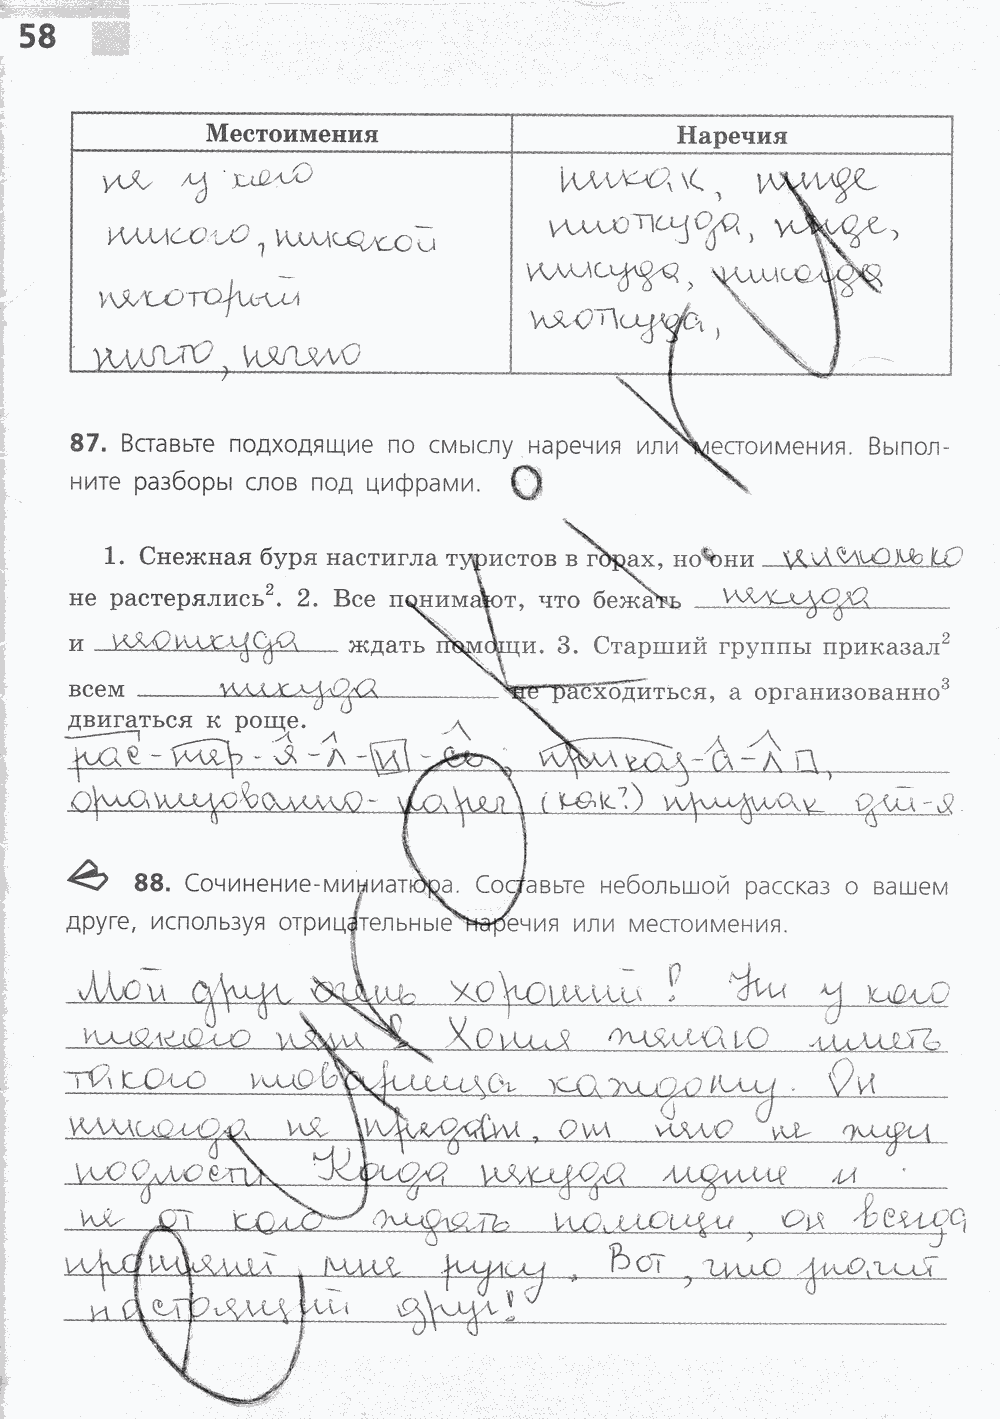 58
Местоимения Наречия
не у кого никак, нигде
никого, никакой ниоткуда, нигде,
некоторый никуда, никогда
ничто, нечего неоткуда,
87. Вставьте подходящие по смыслу наречия или местоимения. Выпол-
ните разборы слов под цифрами.
1. Снежная буря настигла туристов в горах, но они нисколько
не растерялись². 2. Все понимают, что бежать некуда
и неоткуда ждать помощи. 3. Старший группы приказал²
всем никуда не расходиться, а организованно³
двигаться к роще.
рас-тер-я-л-и-сь; приказ-а-л,
организованно- нареч (как?) признак дей-я.
88. Сочинение-миниатюра. Составьте небольшой рассказ о вашем
друге, используя отрицательные наречия или местоимения.
Мой друг очень хороший! Ни у кого
такого нет! желаю иметь
такого товарища каждому. Он
никогда не предаёт, от него не жди
подлости. Когда некуда идти и
не от кого ждать помощи, он всегда
протянет мне руку. Вот, что значит
настоящий друг!